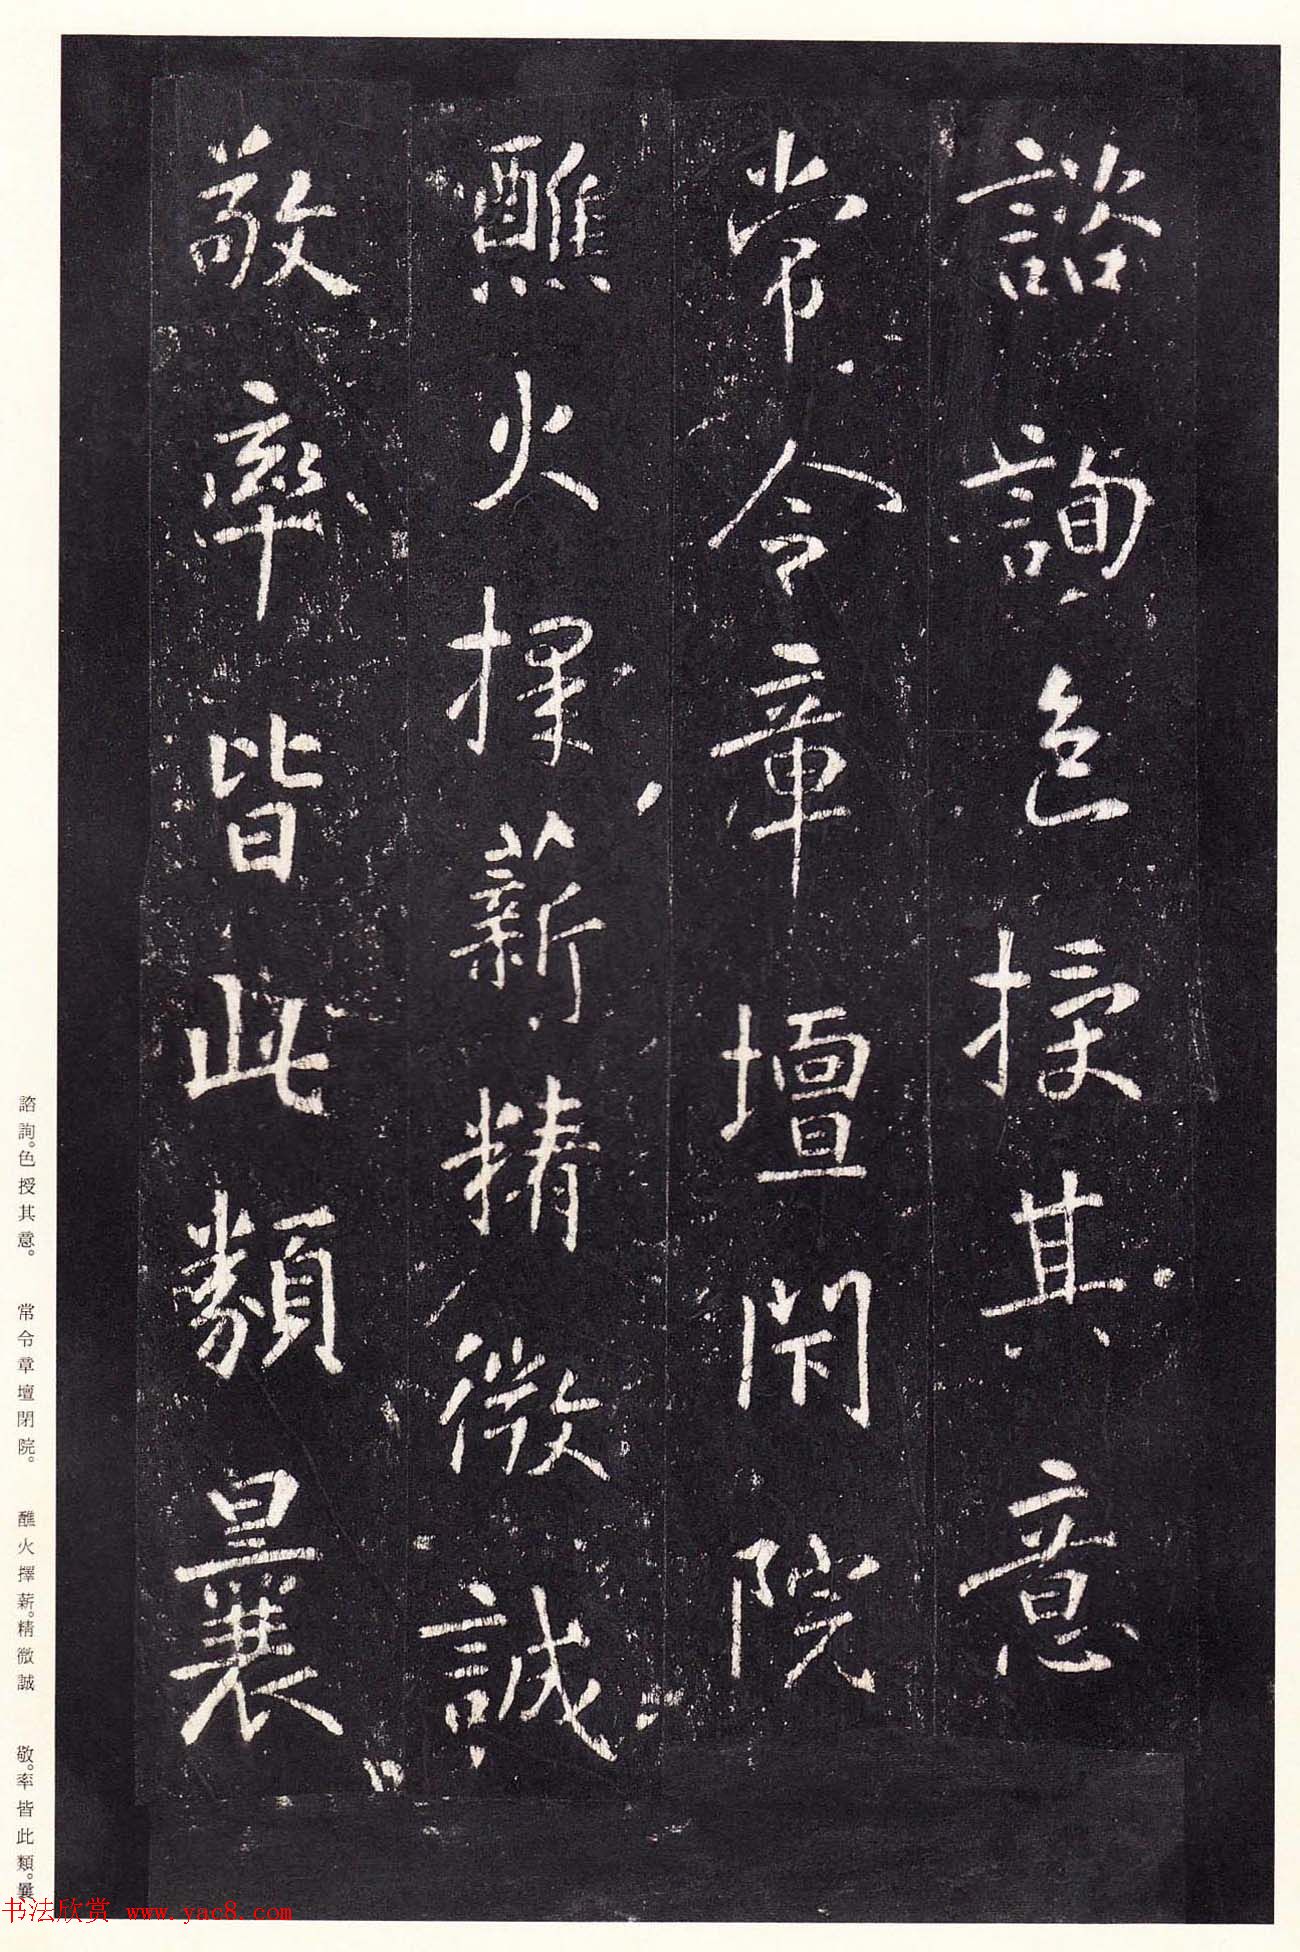 諮詢色授其意
常令章壇閉院
醮火擇薪精微誠
敬率皆此類曩
諮詢。色授其意。 常令章壇閉院。 醮火擇薪。精微誠 敬。率皆此類。曩
书法欣赏 www.yac8.com